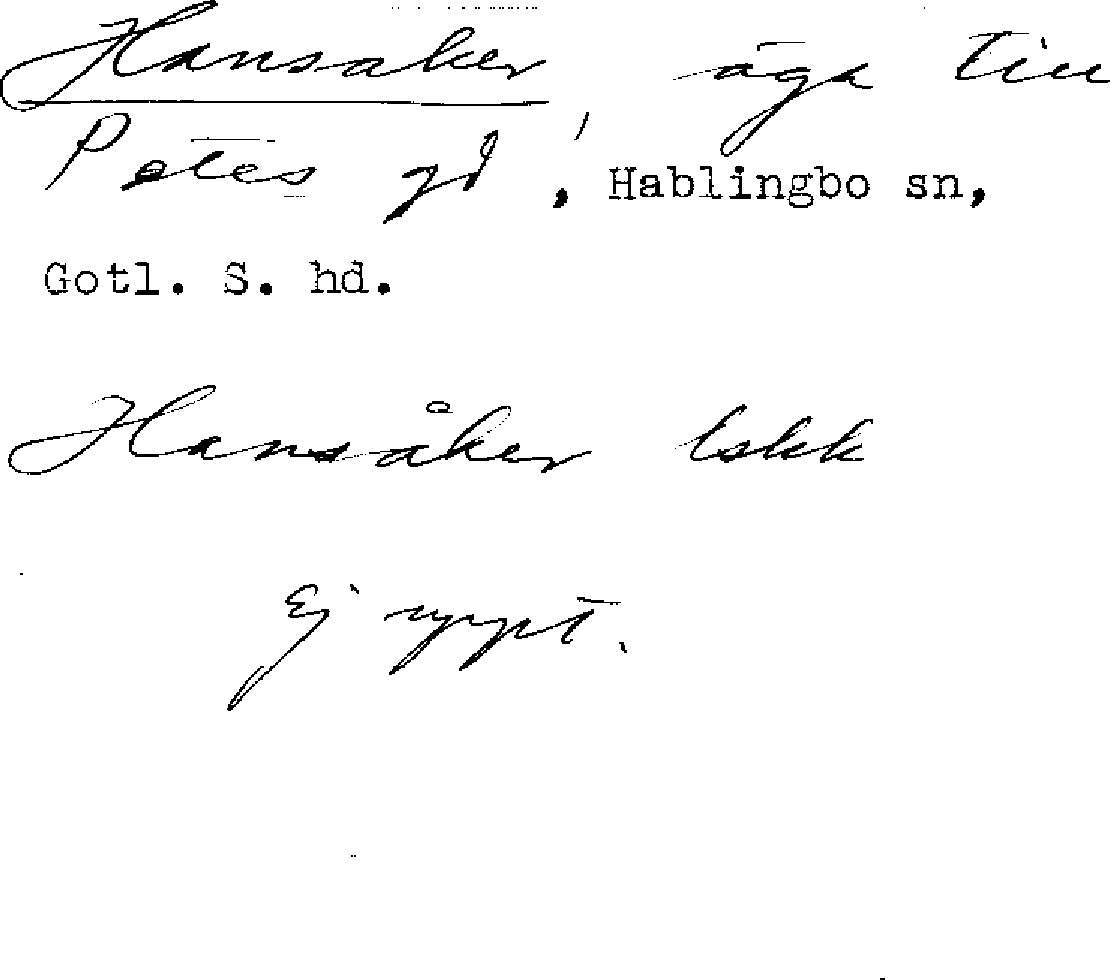 Hansaker, äga till
Petes gd, Hablingbo sn,
Gotl. S. hd.
Hansåker lskk
Ej uppt.